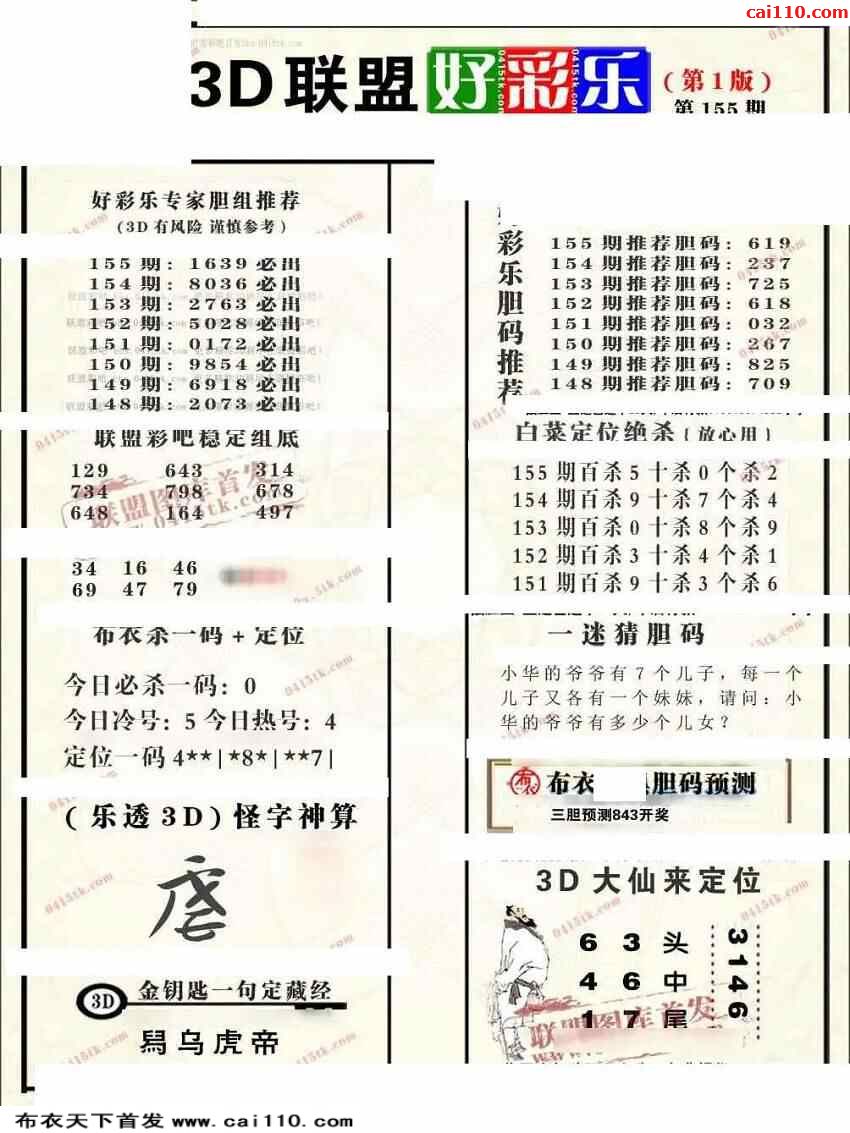 cai110.com
3D联盟好彩乐
(第1版)
第155期
好彩乐专家胆组推荐
(3D有风险 谨慎参考)
155期: 1639必出
154期: 8036必出
153期: 2763必出
152期: 5028必出
151期: 0172必出
150期: 9854必出
149期: 6918必出
148期: 2073必出
联盟彩吧稳定组底
129 643 314
734 798 678
648 164 497
34 16 46
69 47 79
布衣杀一码+定位
今日必杀一码: 0
今日冷号: 5 今日热号: 4
定位一码 4**|*8*|**7|
(乐透3D)怪字神算
3D 金钥匙一句定藏经
舄乌虎帝
彩乐胆码推荐
155期推荐胆码: 619
154期推荐胆码: 237
153期推荐胆码: 725
152期推荐胆码: 618
151期推荐胆码: 032
150期推荐胆码: 267
149期推荐胆码: 825
148期推荐胆码: 709
白菜定位绝杀(放心用)
155期百杀5十杀0个杀2
154期百杀9十杀7个杀4
153期百杀0十杀8个杀9
152期百杀3十杀4个杀1
151期百杀9十杀3个杀6
一迷猜胆码
小华的爷爷有7个儿子，每一个
儿子又各有一个妹妹，请问：小
华的爷爷有多少个儿女？
布衣 胆码预测
三胆预测843开奖
3D大仙来定位
6 3 头
4 6 中
1 7 尾
3146
联盟图库首发
布衣天下首发 www.cai110.com